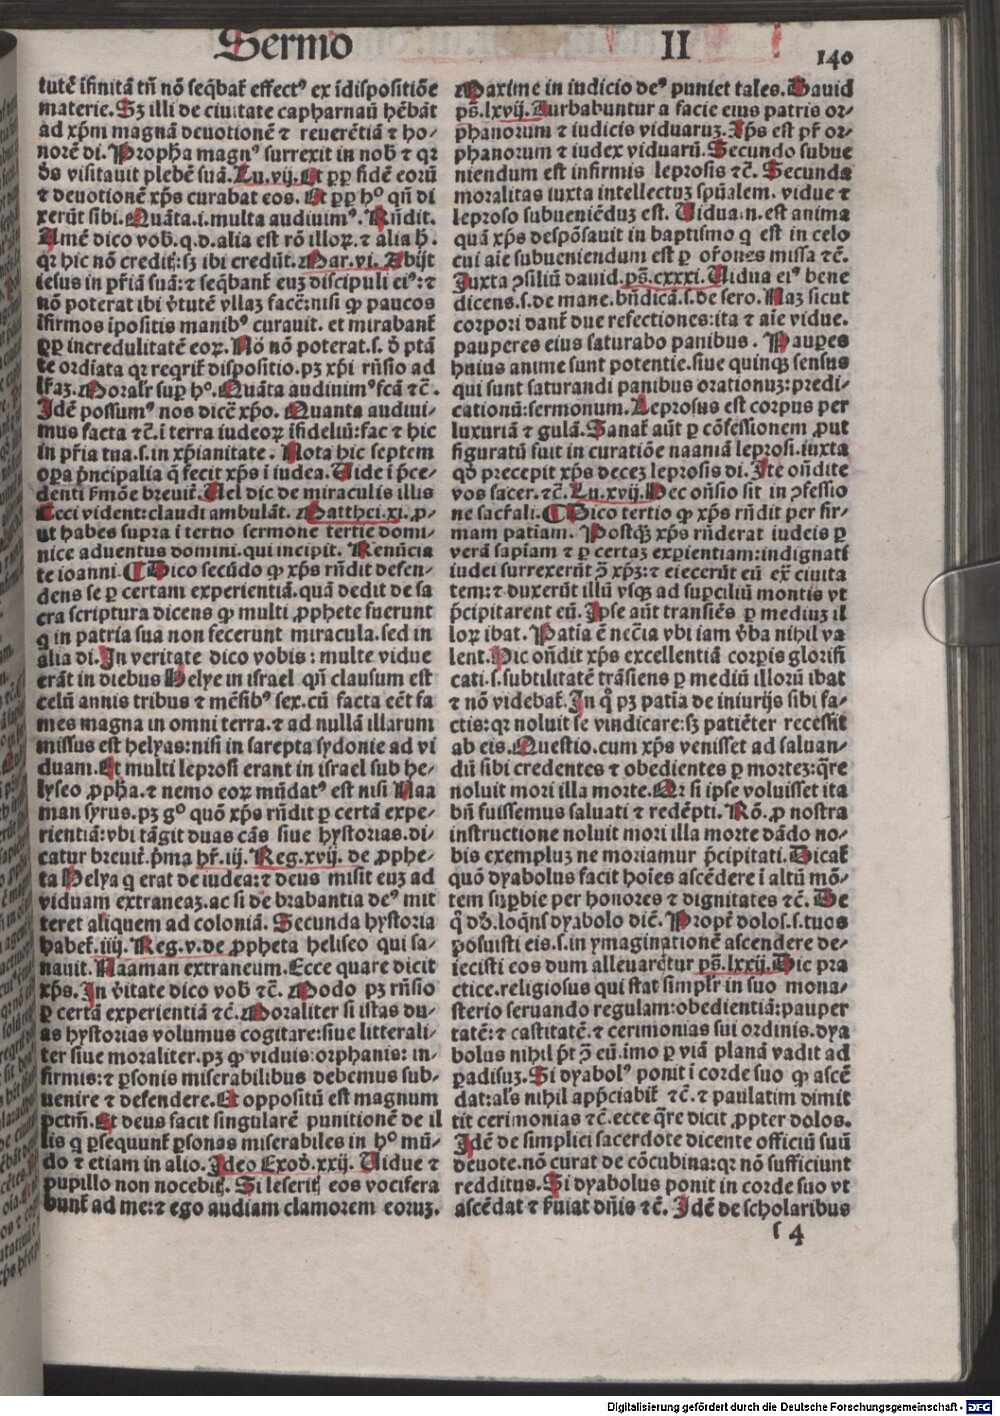 Sermo II 140
tutē īfinitā tn̄ nō seq̄bat̄ effectꝰ ex īdispositiōe
materie. Sꝫ illi de ciuitate capharnaū hēbāt
ad xp̄m magnā deuotionē ⁊ reuerētiā ⁊ ho⸗
norē di. Propha magnꝰ surrexit in nob̄ ⁊ qꝛ
d̄s visitauit plebē suā. Lu. vij. Et ꝓp̄ fidē eorū
⁊ deuotionē xp̄s curabat eos. Et ꝓp̄ hº qn̄ di
xerūt sibi. Quāta .i. multa audiuimꝰ. Rn̄dit.
Amē dico vob̄. q. d. alia est rō illoꝝ. ⁊ alia h̄.
qꝛ hic nō credit̄: sꝫ ibi credūt. Mar. vi. Abijt
iesus in pr̄iā suā: ⁊ seq̄bant̄ euꝫ discipuli eiꝰ: ⁊
nō poterat ibi v̄tutē vllaꝫ facē: nisi ꝙ paucos
īfirmos īpositis manibꝰ curauit. et mirabant̄
ꝓp̄ incredulitatē eoꝝ. Nō nō poterat .s. d̄ ptā
te ordiata qꝛ reqrit̄ dispositio. pꝫ xp̄i rn̄sio ad
lr̄aꝫ. Moralr̄ suꝑ hº. Quāta audiuimꝰ fcā ⁊c̄.
Idē possumꝰ nos dicē xp̄o. Quanta audiui⸗
mus facta ⁊c̄. i terra iudeoꝝ īfideliū: fac ⁊ hic
in pr̄ia tua .s. in xp̄ianitate. Nota hic septem
oꝑa p̄ncipalia q̄ fecit xp̄s i iudea. Vide i p̄ce⸗
denti s̄mōe breuit̄. Uel dic de miraculis illis
Ceci vident: claudi ambulāt. Matthei. xi. ꝓ⸗
ut habes supra i tertio sermone tertie domi⸗
nice aduentus domini. qui incipit. Renūcia
te ioanni. ¶ Dico secūdo ꝙ xp̄s rn̄dit defen⸗
dens se ꝑ certam experientiā. quā dedit de sa
cra scriptura dicens ꝙ multi ꝓphete fuerunt
q in patria sua non fecerunt miracula. sed in
alia di. In veritate dico vobis: multe vidue
erāt in diebus Helye in israel qn̄ clausum est
celū annis tribus ⁊ mēsibꝰ sex. cū facta eēt fa
mes magna in omni terra. ⁊ ad nullā illarum
missus est helyas: nisi in sarepta sydonie ad vi
duam. Et multi leprosi erant in israel sub he⸗
lyseo ꝓph̄a. ⁊ nemo eoꝝ mūdatꝰ est nisi Naa
man syrus. pꝫ gº quō xp̄s rn̄dit ꝑ certā expe⸗
rientiā: vbi tāgit duas cās siue hystorias. di⸗
catur breuit̄. p̄ma hr̄. iij. Reg. xvij. de ꝓphe⸗
ta Helya q erat de iudea: ⁊ deus misit euꝫ ad
viduam extraneaꝫ. ac si de brabantia deꝰ mit
teret aliquem ad coloniā. Secunda hystoria
habet̄. iiij. Reg. v. de ꝓpheta heliseo qui sa⸗
nauit. Naaman extraneum. Ecce quare dicit
xp̄s. In v̄itate dico vob̄ ⁊c̄. Modo pꝫ rn̄sio
ꝑ certā experientiā ⁊c̄. Moraliter si istas du⸗
as hystorias volumus cogitare: siue litterali⸗
ter siue moraliter. pꝫ ꝙ viduis: orphanis: in⸗
firmis: ⁊ ꝑsonis miserabilibus debemus sub⸗
uenire ⁊ defendere. Et oppositū est magnum
pctm̄. Et deus facit singularē punitionē de il
lis q ꝑsequunt̄ ꝑsonas miserabiles in hº mū⸗
do ⁊ etiam in alio. Ideo Exod̄. xxij. Vidue ⁊
pupillo non nocebit̄. Si leserit̄ eos vocifera
bunt̄ ad me: ⁊ ego audiam clamorem eoruꝫ.
Maxime in iudicio deꝰ puniet tales. Dauid
ps̄. lxvij. Turbabuntur a facie eius patris or⸗
phanorum ⁊ iudicis viduaruꝫ. Xp̄s est pr̄ or⸗
phanorum ⁊ iudex viduarū. Secundo subue
niendum est infirmis leprosis ⁊c̄. Secunda
moralitas iuxta intellectuꝫ sp̄ualem. vidue ⁊
leproso subueniēduꝫ est. Vidua .n. est anima
quā xp̄s despōsauit in baptismo q est in celo
cui aīe subueniendum est ꝑ or̄ones missa ⁊c̄.
Juxta ꝯsiliū dauid. ps̄. cxxxi. Vidua eiꝰ bene
dicens .s. de mane. bn̄dicā .s. de sero. Naꝫ sicut
corpori dant̄ due refectiones: ita ⁊ aīe vidue.
pauperes eius saturabo panibus. Pauꝑes
huius anime sunt potentie. siue quinqꝫ sensus
qui sunt saturandi panibus orationuꝫ: predi⸗
cationū: sermonum. Leprosus est corpus per
luxuriā ⁊ gulā. Sanat̄ aūt ꝑ cōfessionem ꝓut
figuratū fuit in curatiōe naamā leprosi. iuxta
qd̄ precepit xp̄s deceꝫ leprosis di. Ite on̄dite
vos sacer. ⁊c̄. Lu. xvij. Hec on̄sio fit in ꝯfessio
ne sacr̄ali. ¶ Dico tertio ꝙ xp̄s rn̄dit per fir⸗
mam patiam. Postqꝫ xp̄s rn̄derat iudeis ꝑ
verā sapiam ⁊ ꝑ certaꝫ experientiam: indignati
iudei surrexerūt ꝯ̄ xp̄ꝫ: ⁊ eiecerūt eū ex̄ ciuita
tem: ⁊ duxerūt illū vsqꝫ ad suꝑciliū montis vt
p̄cipitarent eū. Ipse aūt transiēs ꝑ mediuꝫ il
loꝝ ibat. Patia ē nec̄ia vbi iam v̄ba nihil va
lent. Hic on̄dit xp̄s excellentiā corꝑis glorifi
cati .s. subtilitatē trāsiens ꝑ mediū illorū ibat
⁊ nō videbat̄. In q̄ pꝫ patia de iniurijs sibi fa⸗
ctis: qꝛ noluit se vindicare: sꝫ patiēter recessit
ab eis. Questio. cum xp̄s venisset ad saluan⸗
dū sibi credentes ⁊ obedientes ꝑ morteꝫ: q̄re
noluit mori illa morte. Qꝛ si ipse voluisset ita
bn̄ fuissemus saluati ⁊ redēpti. Rō. ꝓ nostra
instructione noluit mori illa morte dādo no⸗
bis exempluꝫ ne moriamur p̄cipitati. Dicat̄
quō dyabolus facit hoīes ascēdere i altū mō⸗
tem suꝑbie per honores ⁊ dignitates ⁊c̄. De
q̄ dd̄. loqn̄s dyabolo dic̄. Propt̄ dolos .s. tuos
posuisti eis .s. in ymaginationē ascendere de⸗
iecisti eos dum alleuarētur ps̄. lxxij. Hic pra
ctice. religiosus qui stat simplr̄ in suo mona⸗
sterio seruando regulam: obedientiā: pauper
tatē: ⁊ castitatē. ⁊ cerimonias sui ordinis. dya
bolus nihil pt̄ ꝯ̄ eū. imo ꝑ viā planā vadit ad
ꝑadisuꝫ. Si dyabolꝰ ponit i corde suo ꝙ ascē
dat: als̄ nihil app̄ciabit̄ ⁊c̄. ⁊ paulatim dimit
tit cerimonias ⁊c̄. ecce q̄re dicit ꝓpter dolos.
Idē de simplici sacerdote dicente officiū suū
deuote. nō curat de cōcubina: qꝛ nō sufficiunt
redditus. Si dyabolus ponit in corde suo vt
ascēdat ⁊ s̄uiat dn̄is ⁊c̄. Idē de scholaribus
ſ 4
Digitalisierung gefördert durch die Deutsche Forschungsgemeinschaft - DFG